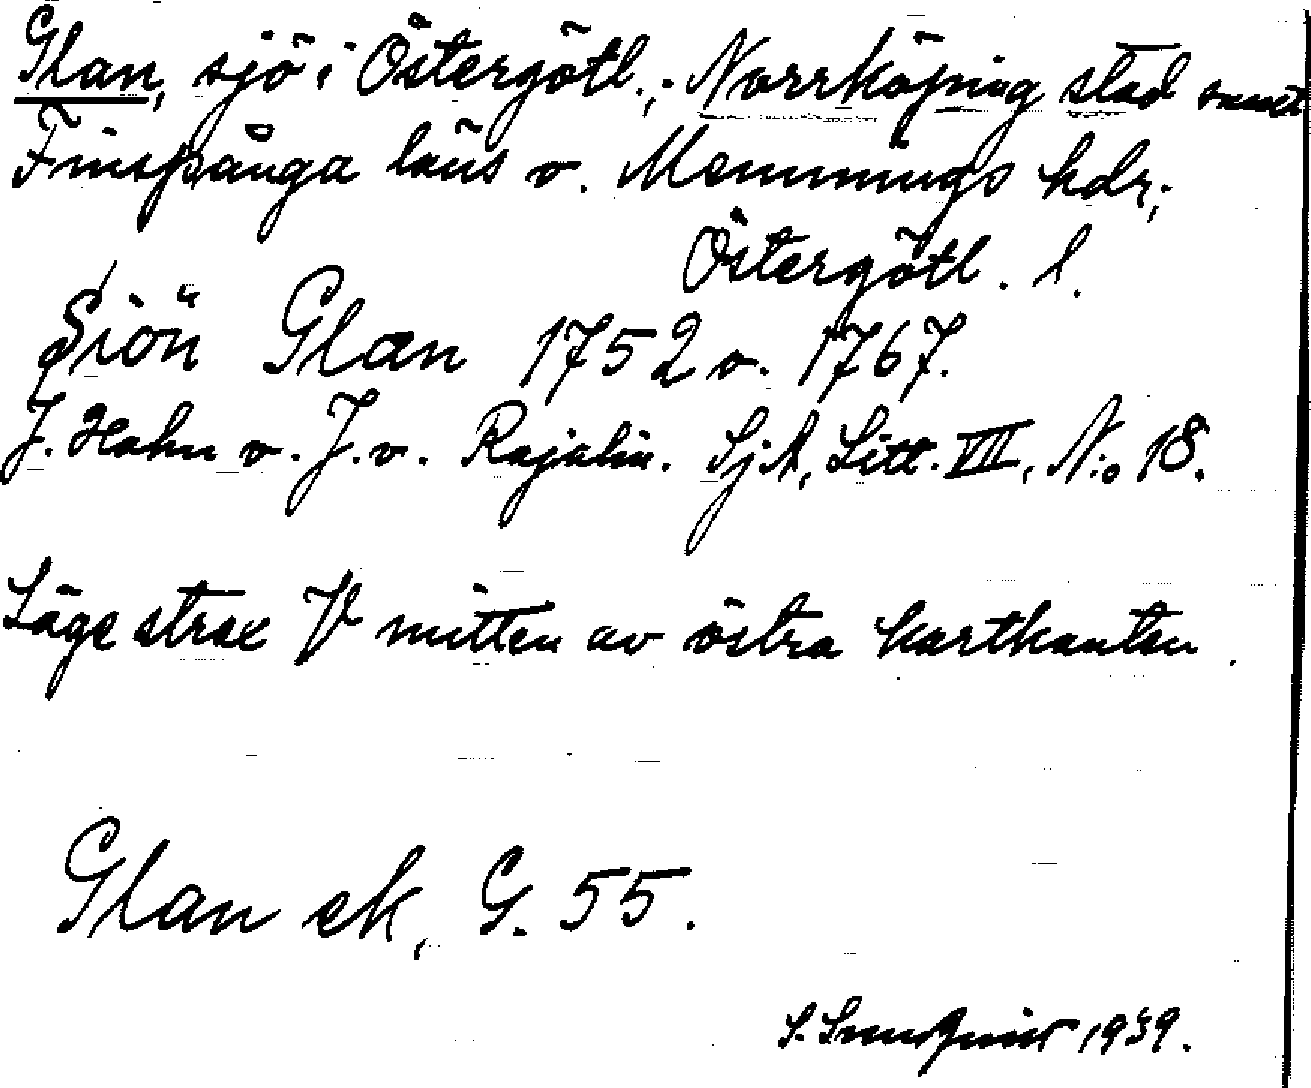 Glan, sjö i Östergötl.; Norrköping stad samt
Finspånga läns o. Memmings hdr;
Östergötl. l.
Siön Glan 1752 o. 1767.
J. Hahn o. J. v. Rajalin. SjA, Litt. VII, N:o 18.
Läge strax V mitten av östra kartkanten.
Glan ek, G. 55.
S. 1939.